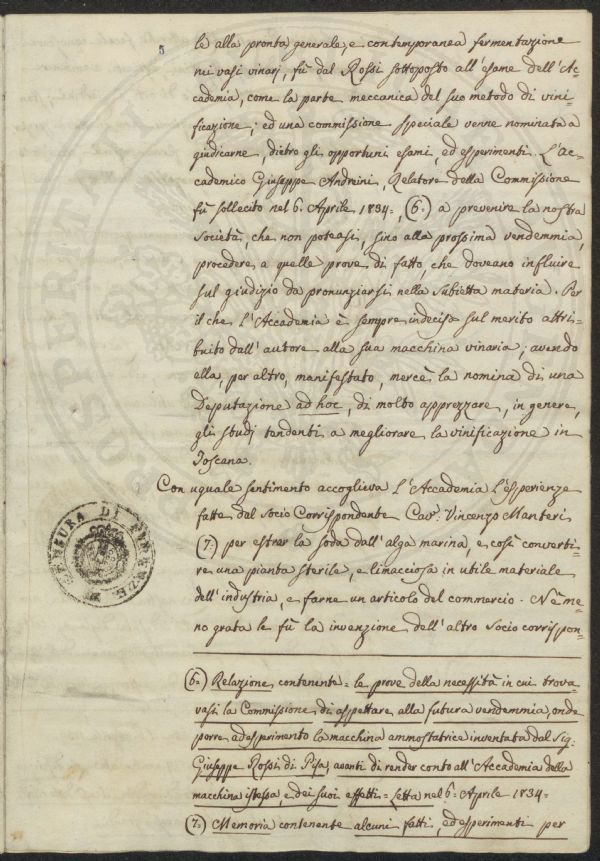 5
le alla pronta generale, e contemporanea fermentazione
nei vasi vinarj, fù dal Rossi sottoposto all'esame dell'Ac-
cademia, come la parte meccanica del suo metodo di vini-
ficazione; ed una commissione speciale venne nominata a
giudicarne, dietro gli opportuni esami, ed esperimenti. L'Ac-
cademico Giuseppe Andreini, Relatore della Commissione
fù sollecito nel 6. Aprile 1834., (6.) a prevenire la nostra
Società, che non poteasi, sino alla prossima vendemmia,
procedere a quelle prove di fatto, che doveano influire
sul giudizio da pronunziarsi nella subietta materia. Per
il che l'Accademia è sempre indecisa sul merito attri-
buito dall'autore alla sua macchina vinaria; avendo
ella, per altro, manifestato, mercè la nomina di una
Deputazione ad hoc, di molto apprezzare, in genere,
gli studj tendenti a megliorare la vinificazione in
Toscana.
Con uguale sentimento accoglieva l'Accademia l'esperienze
fatte dal Socio Corrispondente Cav. Vincenzo Manteri
(7.) per estrar la soda dall'alga marina, e così converti-
re una pianta sterile, e limacciosa in utile materiale
dell'industria, e farne un articolo del commercio. Nè me-
no grata le fù la invenzione dell'altro Socio corrispon-
(6.) Relazione contenente = le prove della necessità in cui trova-
vasi la Commissione di aspettare alla futura vendemmia, onde
porre ad esperimento la macchina ammostatrice inventata dal Sig.
Giuseppe Rossi di Pisa, avanti di render conto all'Accademia della
macchina istessa, e dei suoi effetti = Letta nel 6. Aprile 1834.
(7.) Memoria contenente alcuni fatti, ed esperimenti per
CENSURA DI FIRENZE